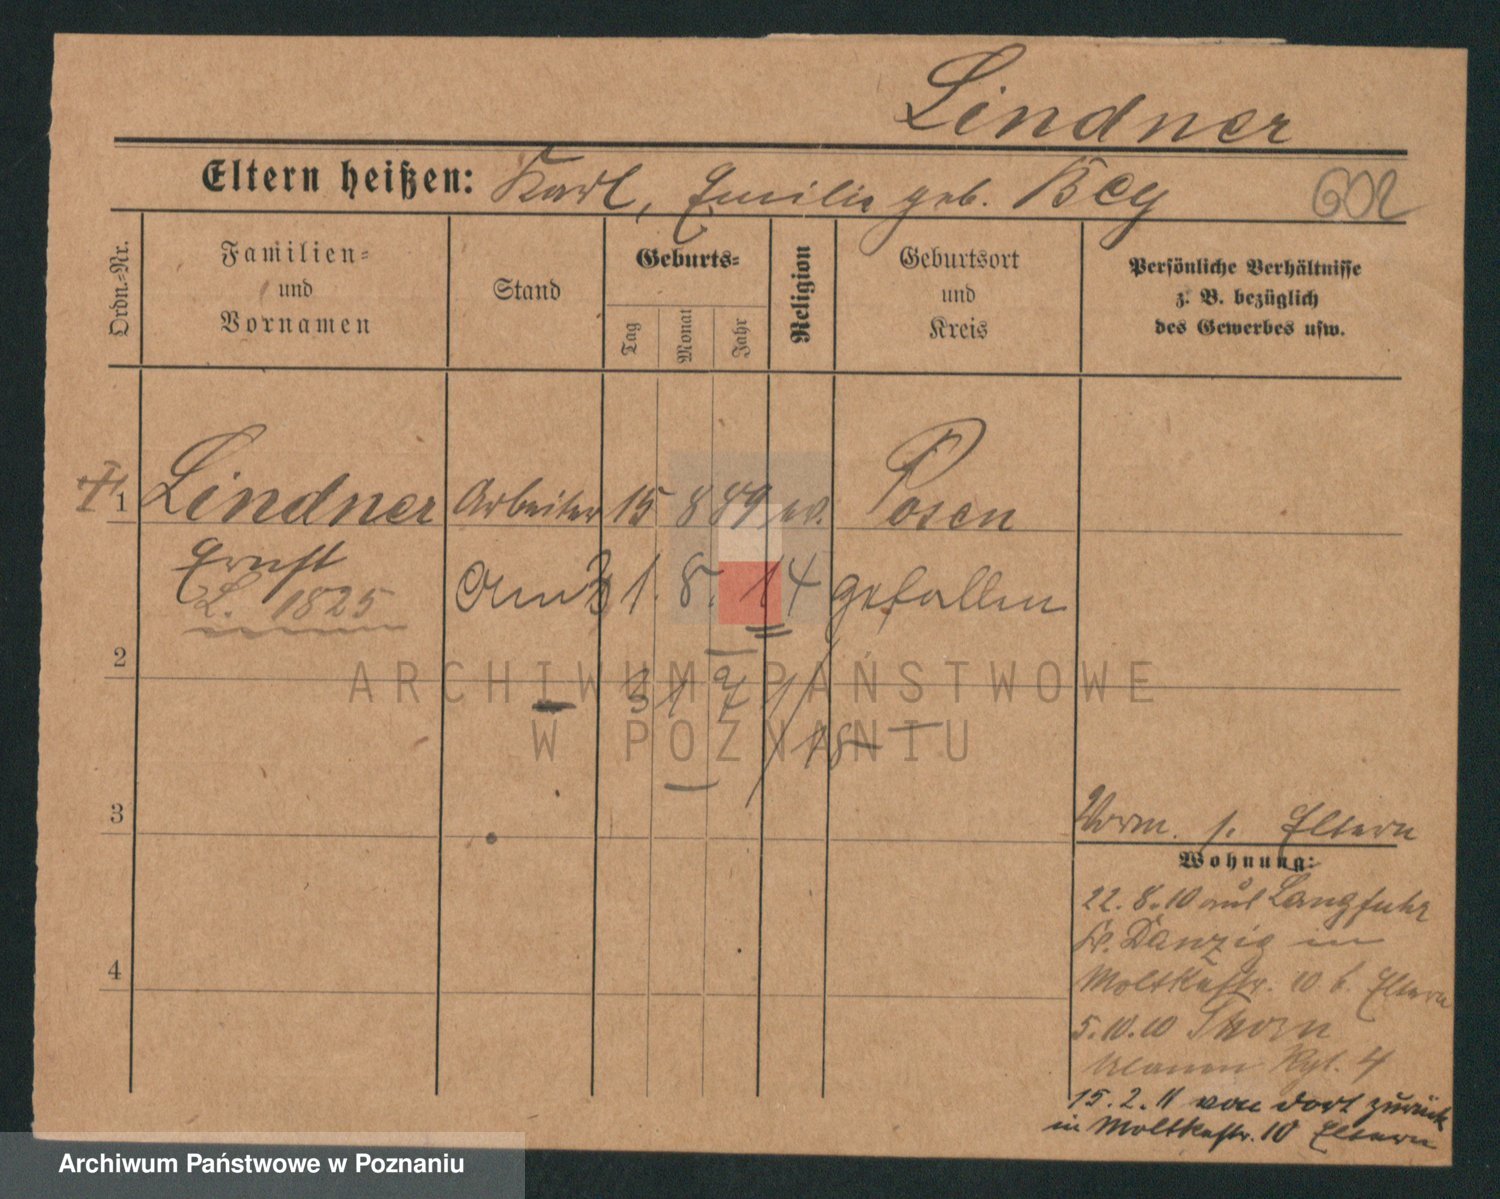 Lindner
Eltern heißen: Karl, Emilie geb. Bey
602
Ordn.-Nr.
Familien-
und
Vornamen
Stand
Geburts-
Tag
Monat
Jahr
Religion
Geburtsort
und
Kreis
Persönliche Verhältnisse
z. B. bezüglich
des Gewerbes usw.
1 Lindner Arbeiter 15 8 89 ev. Posen
Ernst
L. 1825
Am 31. 8. 14 gefallen
2
31 7 /
/ 18
3
Vorm. s. Eltern
Wohnung:
22. 8. 10 aus Langfuhr
Kr. Danzig in
Moltkestr. 10 b. Eltern
5. 10. 10 Thorn
Ulanen Rgt. 4
4
15. 2. 11 von dort zurück
in Moltkestr. 10 Eltern
ARCHIWUM PAŃSTWOWE
W POZNANIU
Archiwum Państwowe w Poznaniu